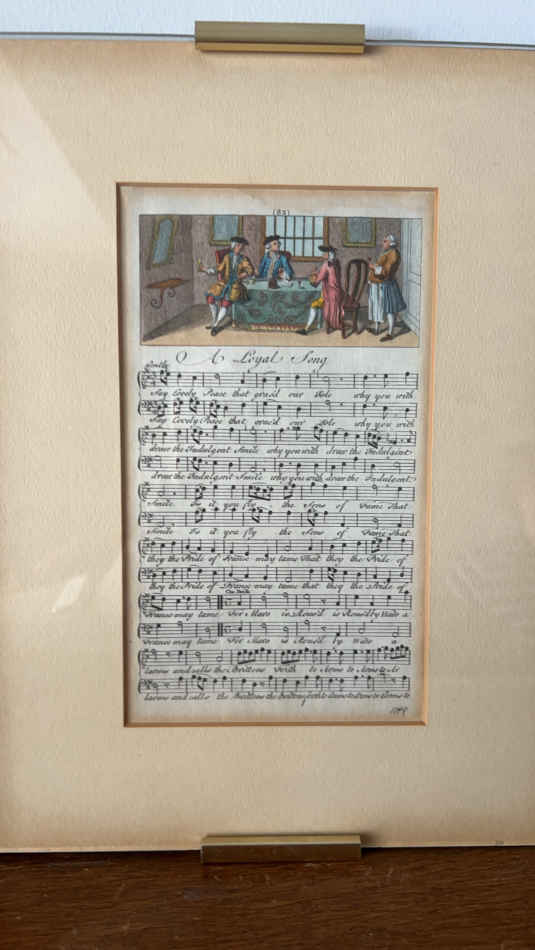 (83)
A Loyal Song
Gentle
Say Lovely Peace that grac'd our Isle why you with
Say Lovely Peace that grac'd our Isle why you with
draw the Indulgent Smile why you with draw the Indulgent
draw the Indulgent Smile why you with draw the Indulgent
Smile Is it you fly the Sons of Fame That
Smile Is it you fly the Sons of Fame That
they the Pride of France may tame That they the Pride of
they the Pride of France may tame that they the Pride of
France may tame For Mars is Rous'd is Rous'd by Wars a
France may tame For Mars is Rous'd by Wars a
larms and calls the Brittons Forth to Arms to Arms to
larms and calls the Brittons the Brittons forth to Arms to Arms to Arms to